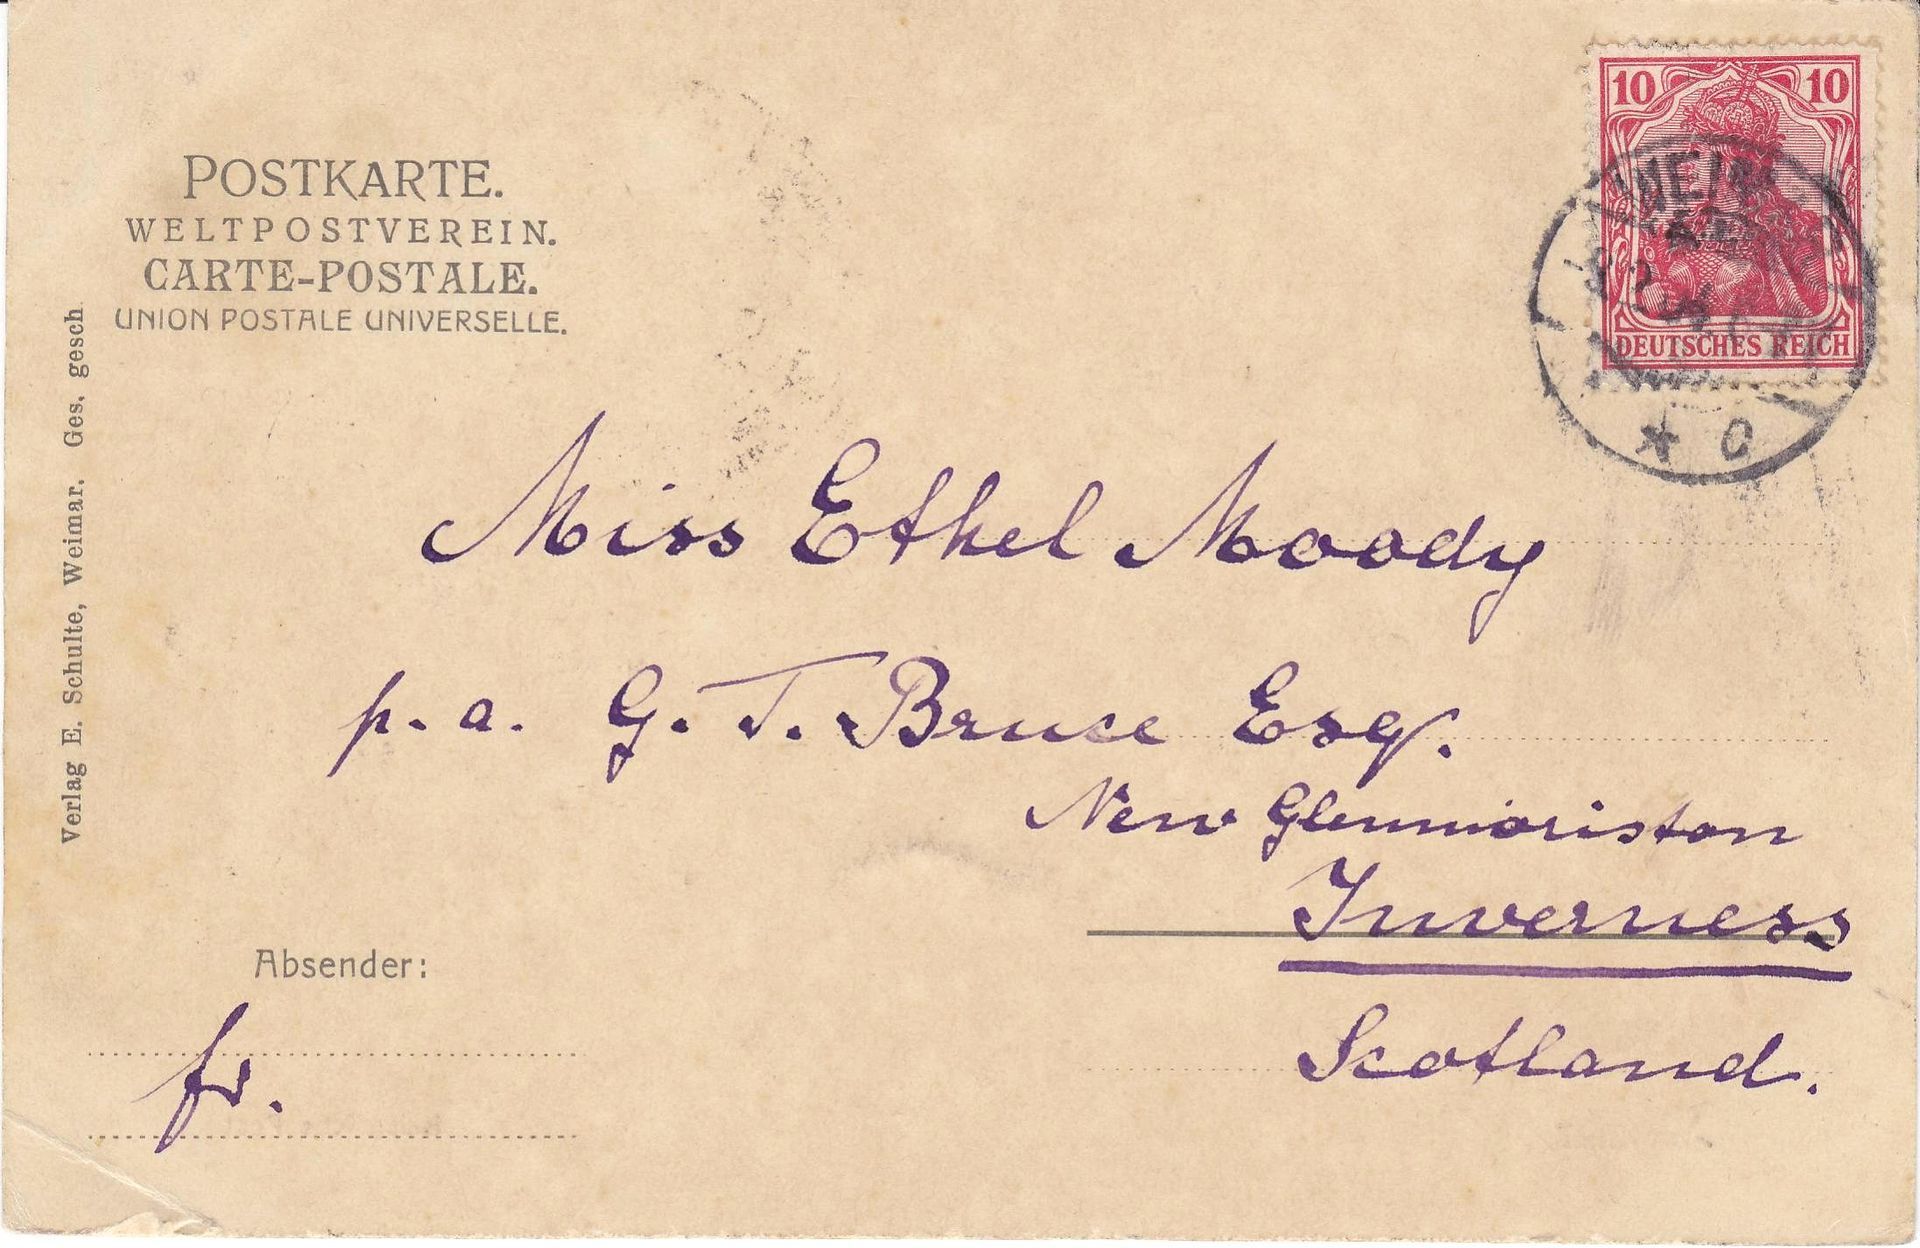 POSTKARTE.
WELTPOSTVEREIN.
CARTE-POSTALE.
UNION POSTALE UNIVERSELLE.
Verlag E. Schulte, Weimar. Ges. gesch
10 10
DEUTSCHES REICH
* c
Miss Ethel Moody
p. a. G. T. Bruce Esq.
New Glenmoriston
Inverness
Scotland.
Absender:
fr.